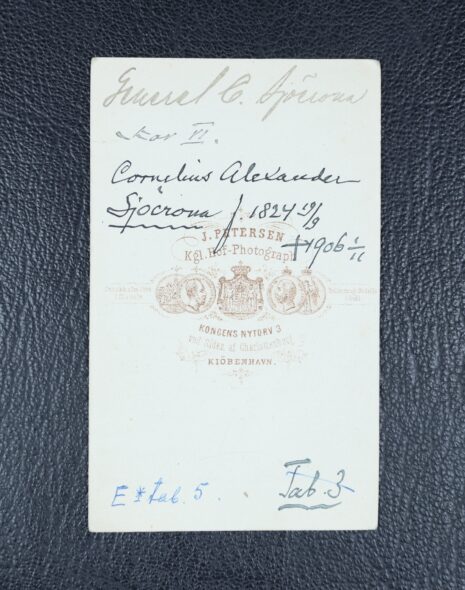 General C. Sjöcrona
Cornelius Alexander
Sjöcrona f. 1824 19/9
J. PETERSEN
†1906 1/11
Kgl. Hof-Photograph
KONGENS NYTORV 3
ved Siden af Charlottenborg
KIØBENHAVN.
E * tab. 5.
Tab. 3